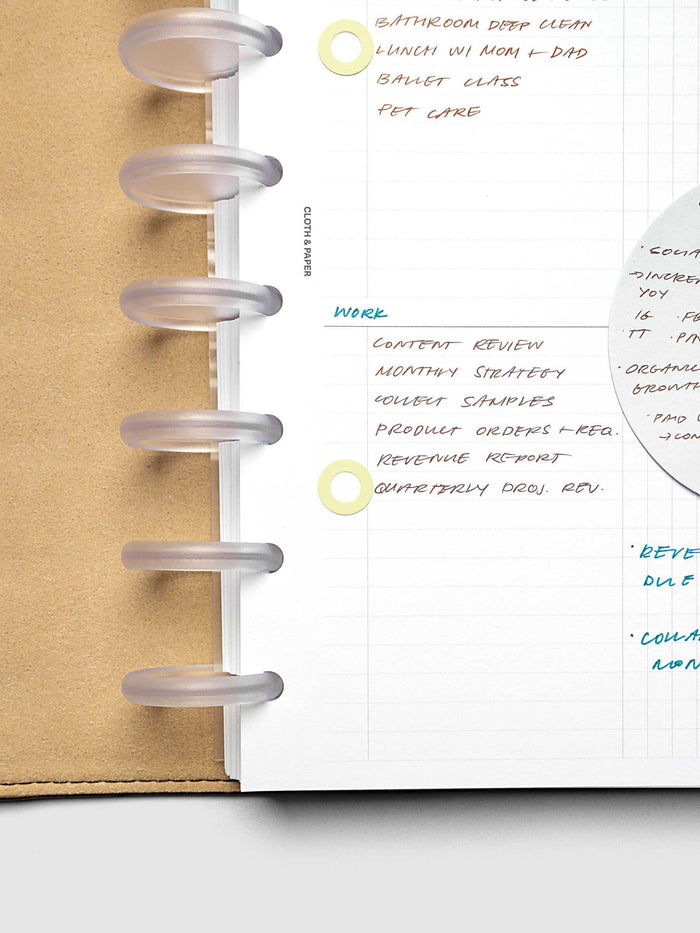 BATHROOM DEEP CLEAN
LUNCH W/ MOM + DAD
BALLET CLASS
PET CARE
CLOTH & PAPER
WORK
CONTENT REVIEW
MONTHLY STRATEGY
COLLECT SAMPLES
PRODUCT ORDERS + REQ.
REVENUE REPORT
QUARTERLY PROJ. REV.
YOY
IG
TT
ORGANIC
GROWTH
PAID
DUE